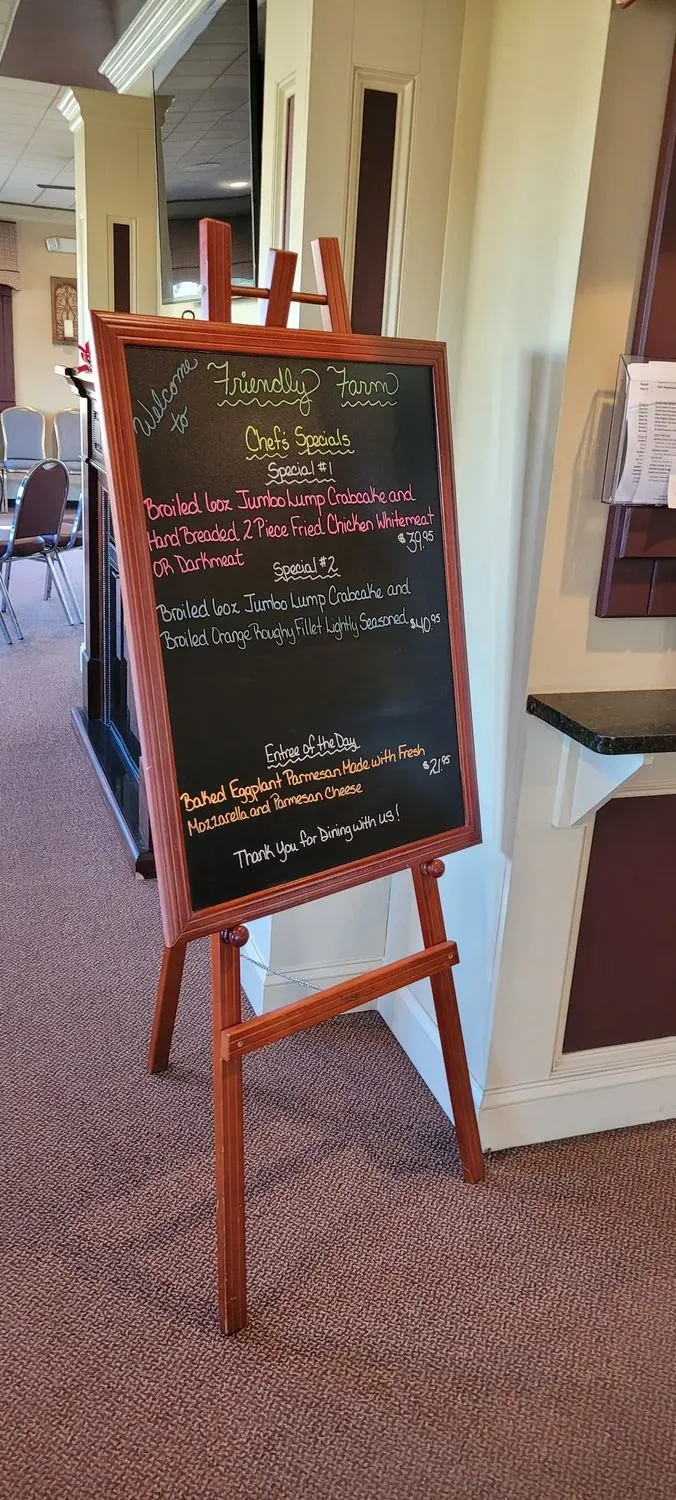 Welcome
to
Friendly Farm
Chef's Specials
Special #1
Broiled 6oz Jumbo Lump Crabcake and
Hand Breaded 2 Piece Fried Chicken Whitemeat
OR Darkmeat
$39.95
Special #2
Broiled 6oz Jumbo Lump Crabcake and
Broiled Orange Roughy Fillet Lightly Seasoned $40.95
Entree of the Day
Baked Eggplant Parmesan Made with Fresh
Mozzarella and Parmesan Cheese
$21.95
Thank you for Dining with us!